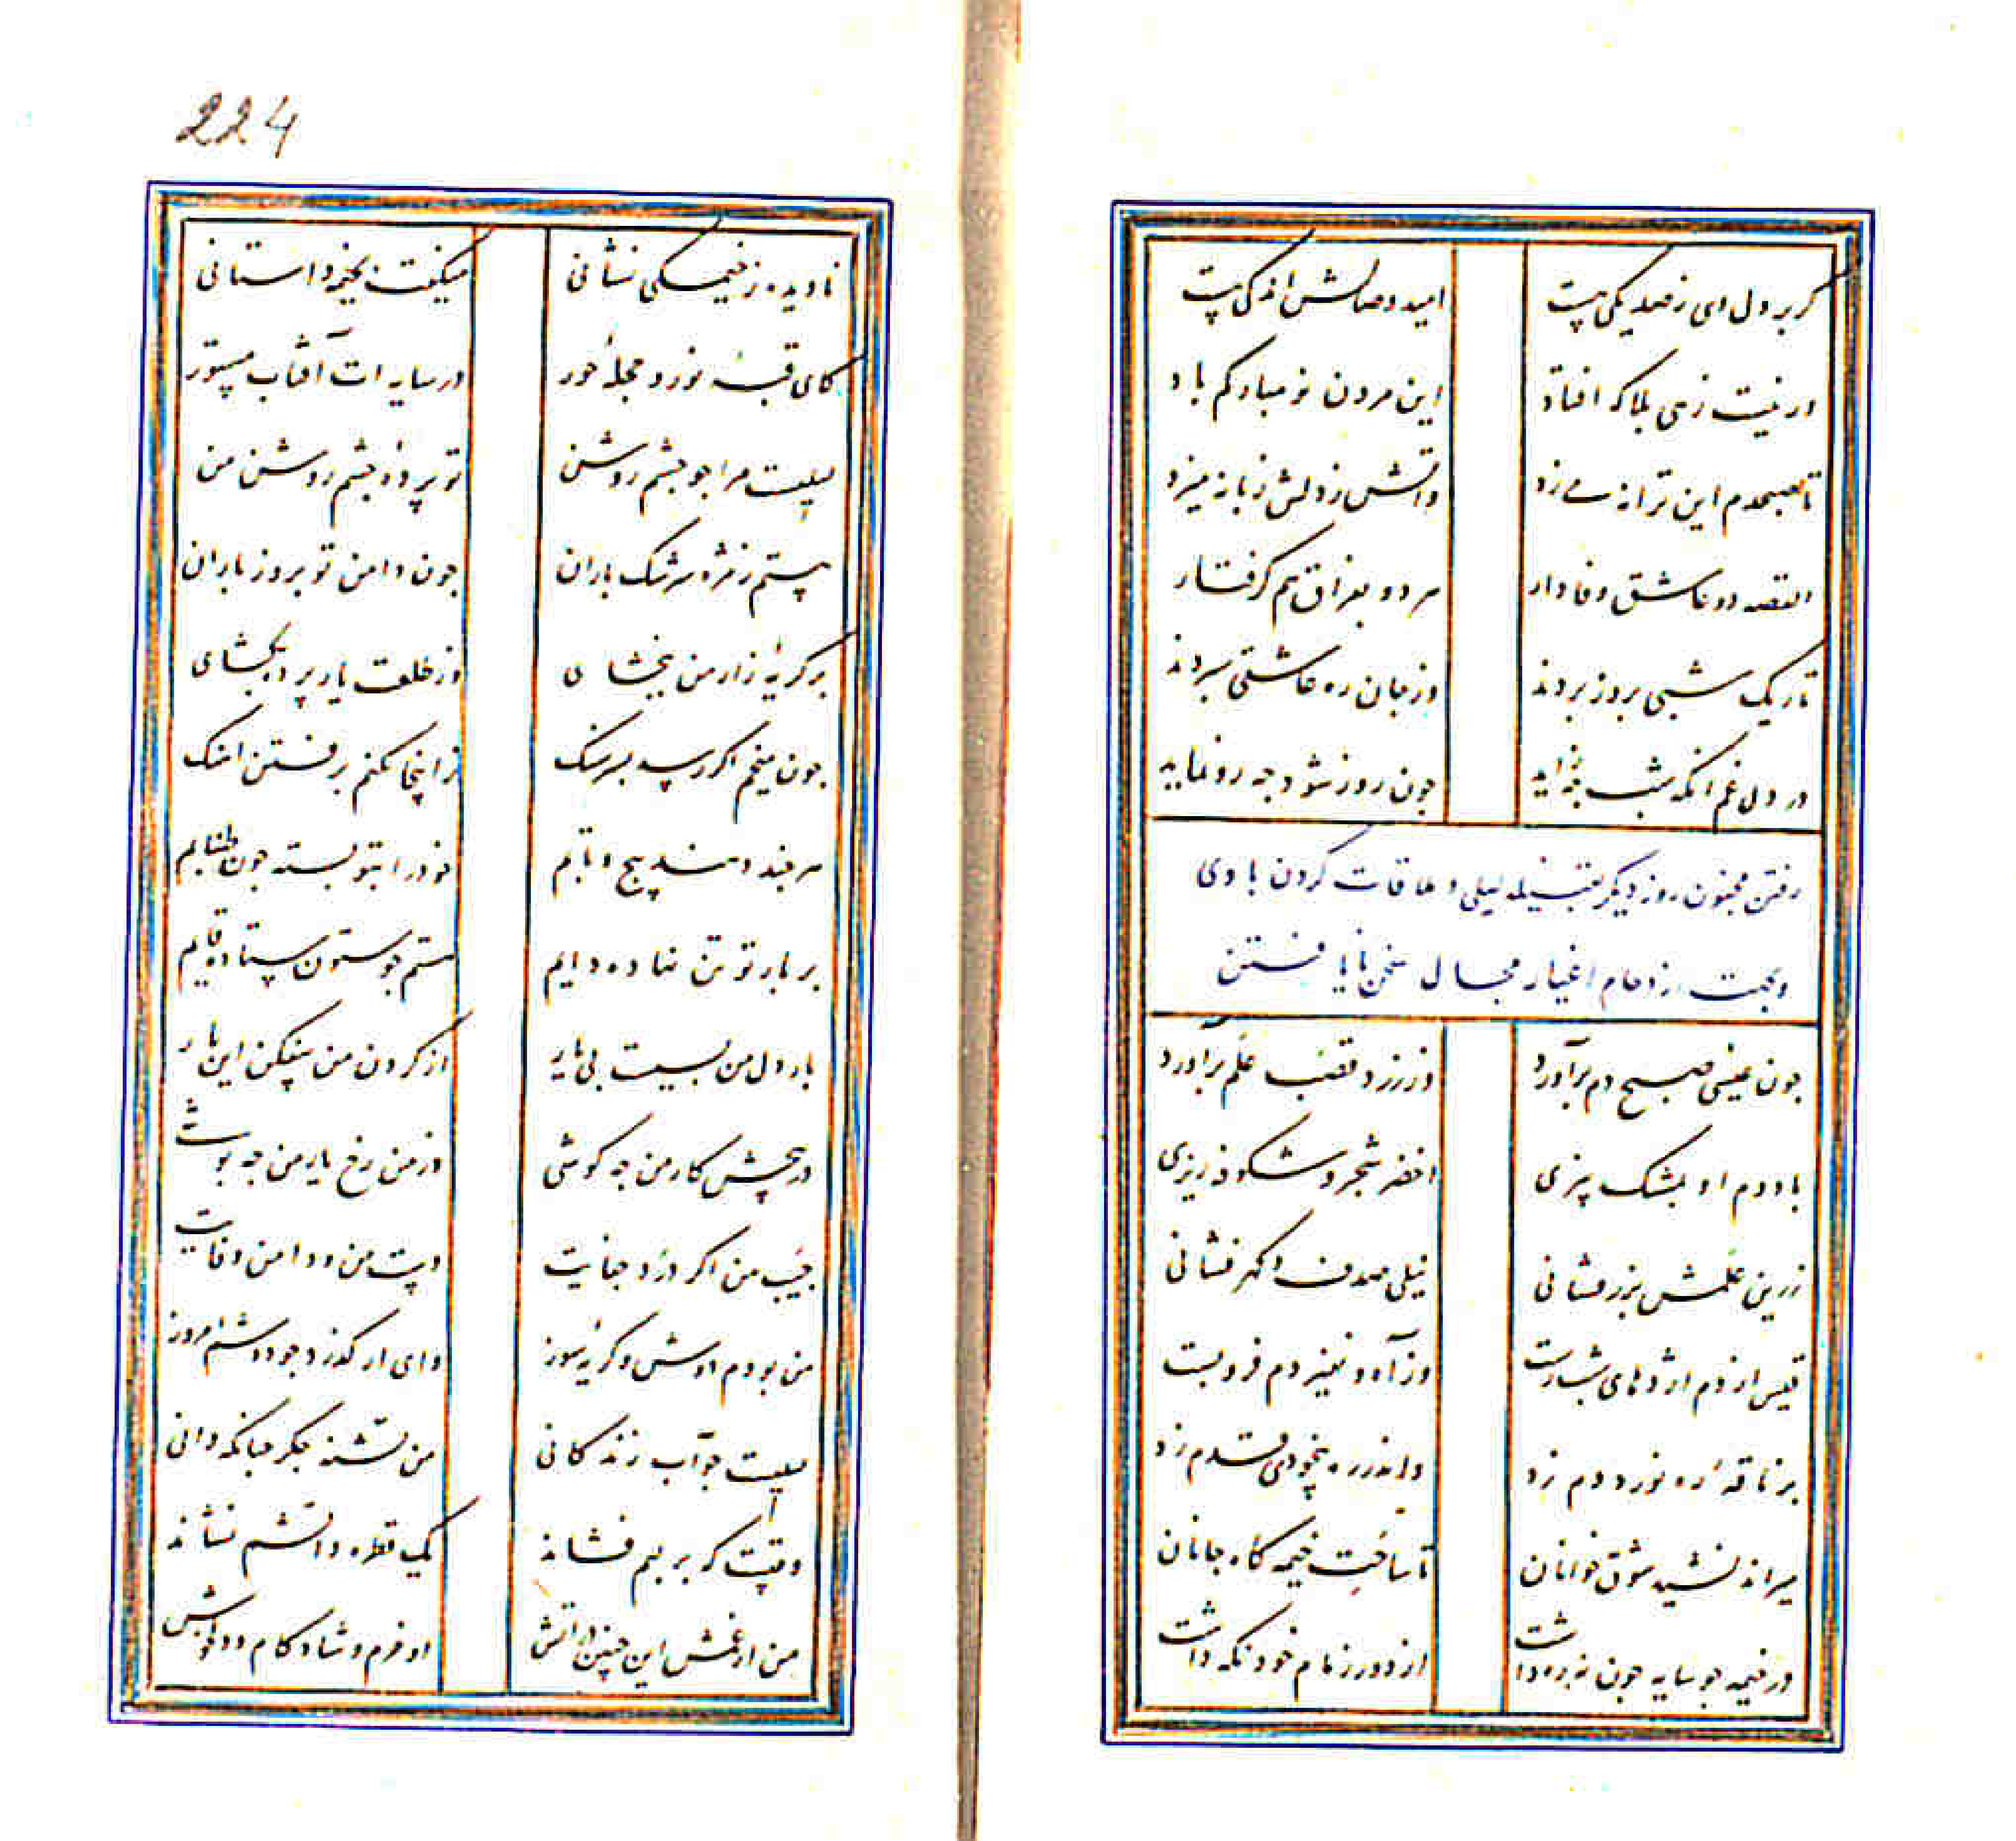 گر بر دل وی ز صد یکی هست امید وصالش اندکی هست
ور نیست زهی بلا که افتاد این مردن نو مبارکم باد
تا صبحدم این ترانه می زد واتش ز دلش زبانه میزد
القصه دو عاشق وفادار هر دو بفراق هم گرفتار
تاریک شبی بروز بردند وز جان ره عاشقی سپردند
در دل غم انکه شب چه زاید چون روز شود چه رو نماید
رفتن مجنون روز دیگر بقبیله لیلی و ملاقات کردن با وی
و بجهت ازدحام اغیار مجال سخن نایافتن
چون عیسی صبح دم برآورد وز زرد قصب علم برآورد
باد دم او بمشک بیزی اخضر شجر و شکوفه ریزی
زرین علمش بزر فشانی نیلی صدف و گهر فشانی
قیس از دم اژدهای شب رست وز آه و نفیر دم فرو بست
بر ناقه ره نورد دم زد واندر ره بیخودی قدم زد
میراند نشید شوق خوانان تا ساحت خیمه گاه جانان
در خیمه چو سایه چون نه ره داشت از دور زمام خود نگه داشت
224
نادیده ز خیمگی نشانی میگفت بخیمه داستانی
کای قبه نور و حجله حور در سایه ات آفتاب مستور
لیلیست مرا چو چشم روشن تو پرده چشم روشن من
هستم ز مژه سرشک باران چون دامن تو بروز باران
بر گریه زار من ببخشای وز طلعت یار پرده بگشای
چون میخم اگر رسد بسر سنگ ز اینجا نکنم برفتن اهنگ
هر چند دهند پیچ و تابم خود را بتو بسته چون طنابم
بر بار تو تن نهاده دایم هستم چو ستون ستاده قایم
بار دل من بسیست بی یار از گردن من بیفکن این بار
در پیچش کار من چه کوشی وز من رخ یار من چه پوشی
جیب من اگر درد جفایت دست من و دامن وفایت
من بودم دوش و گریه سوز وای ار گذرد چو دوشم امروز
لیلیست چو آب زندگانی من تشنه جگر چنانکه دانی
وقتست که بر لبم فشاند یک قطره و اتشم نشاند
من از غمش این چنین در اتش او خرم و شادکام و دلخوش